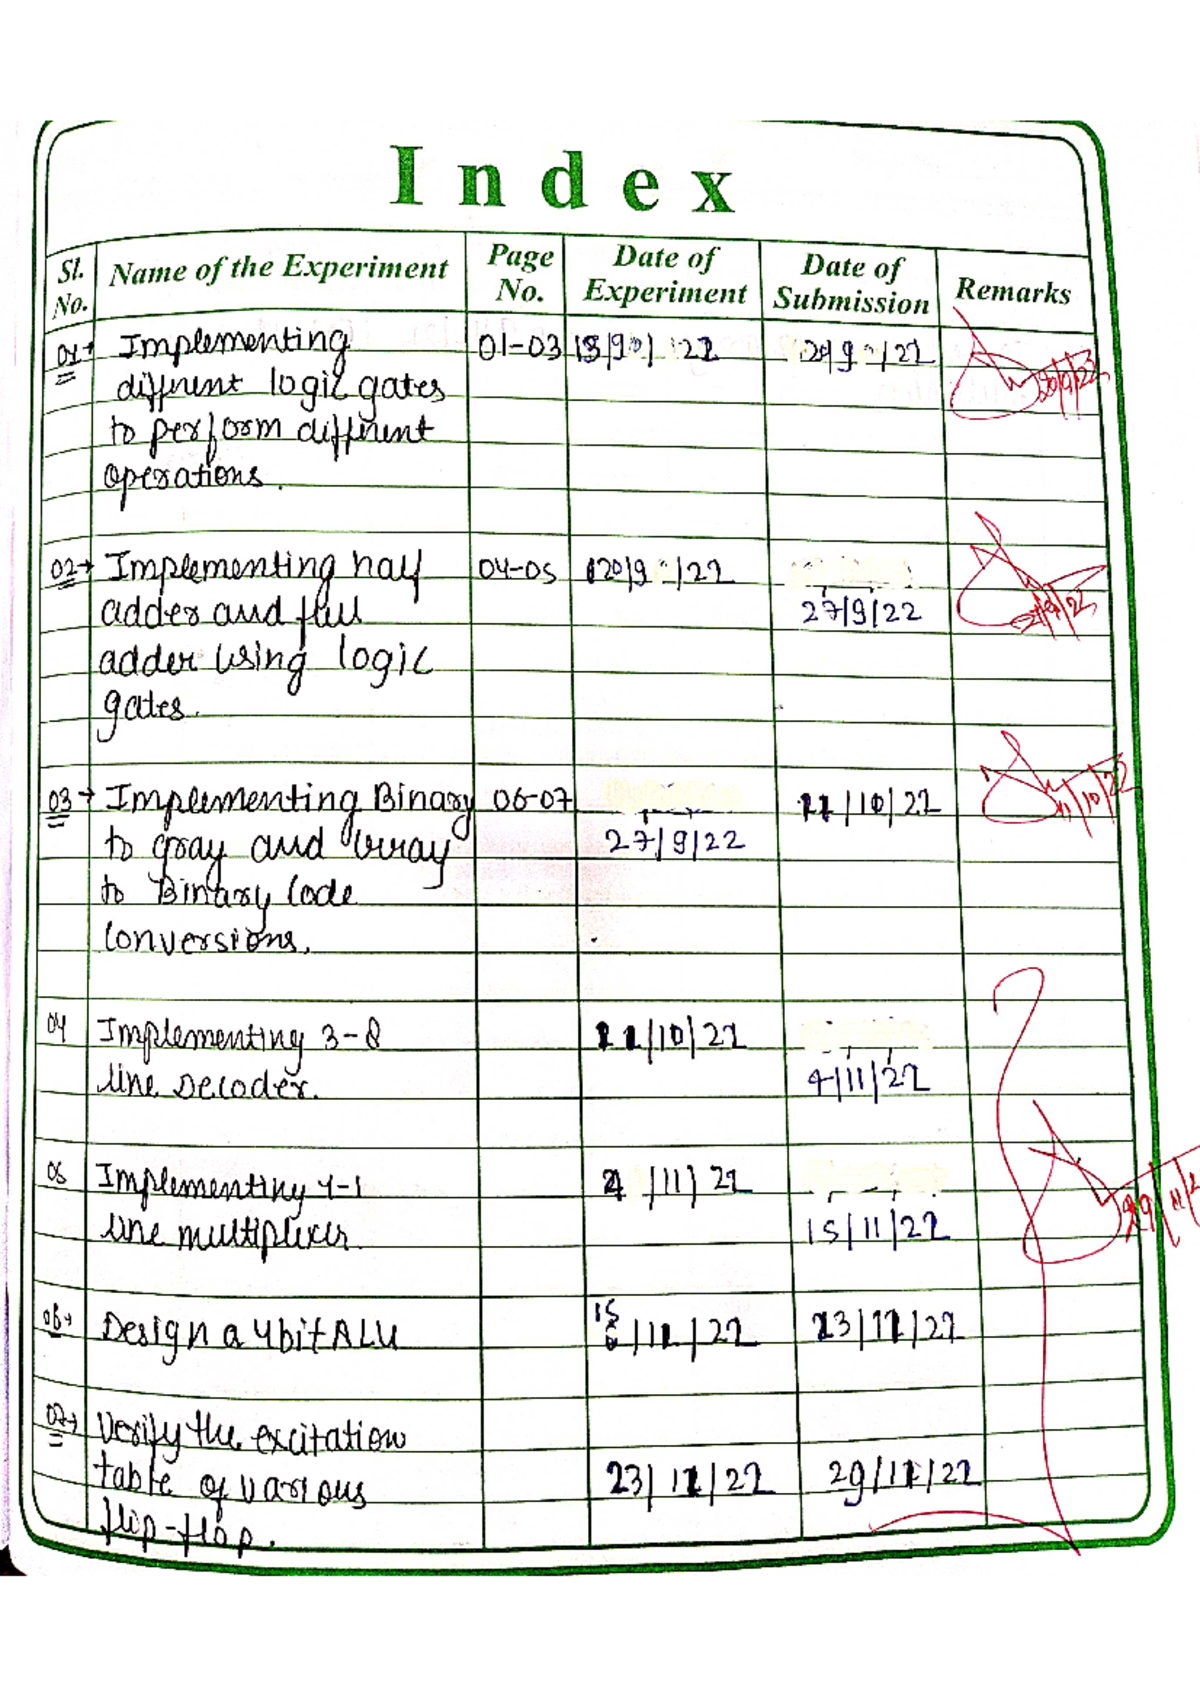 Index
Sl. No. Name of the Experiment Page No. Date of Experiment Date of Submission Remarks
01→ Implementing 01-03 13/9/22 20/9/22
different logic gates 20/9/22
to perform different
operations.
02→ Implementing half 04-05 20/9/22
adder and full 27/9/22
adder using logic
gates.
03→ Implementing Binary 06-07 11/10/22 11/10/22
to gray and 27/9/22
to Binary Code
Conversions.
04 Implementing 3-8 11/10/22
line Decoder. 4/11/22
05 Implementing 4-1 4/11/22
line multiplexer. 15/11/22
06→ Design a 4bit ALU 15/11/22 23/11/22
07→ Verify the excitation
table of various 23/11/22 29/11/22
flip-flop.